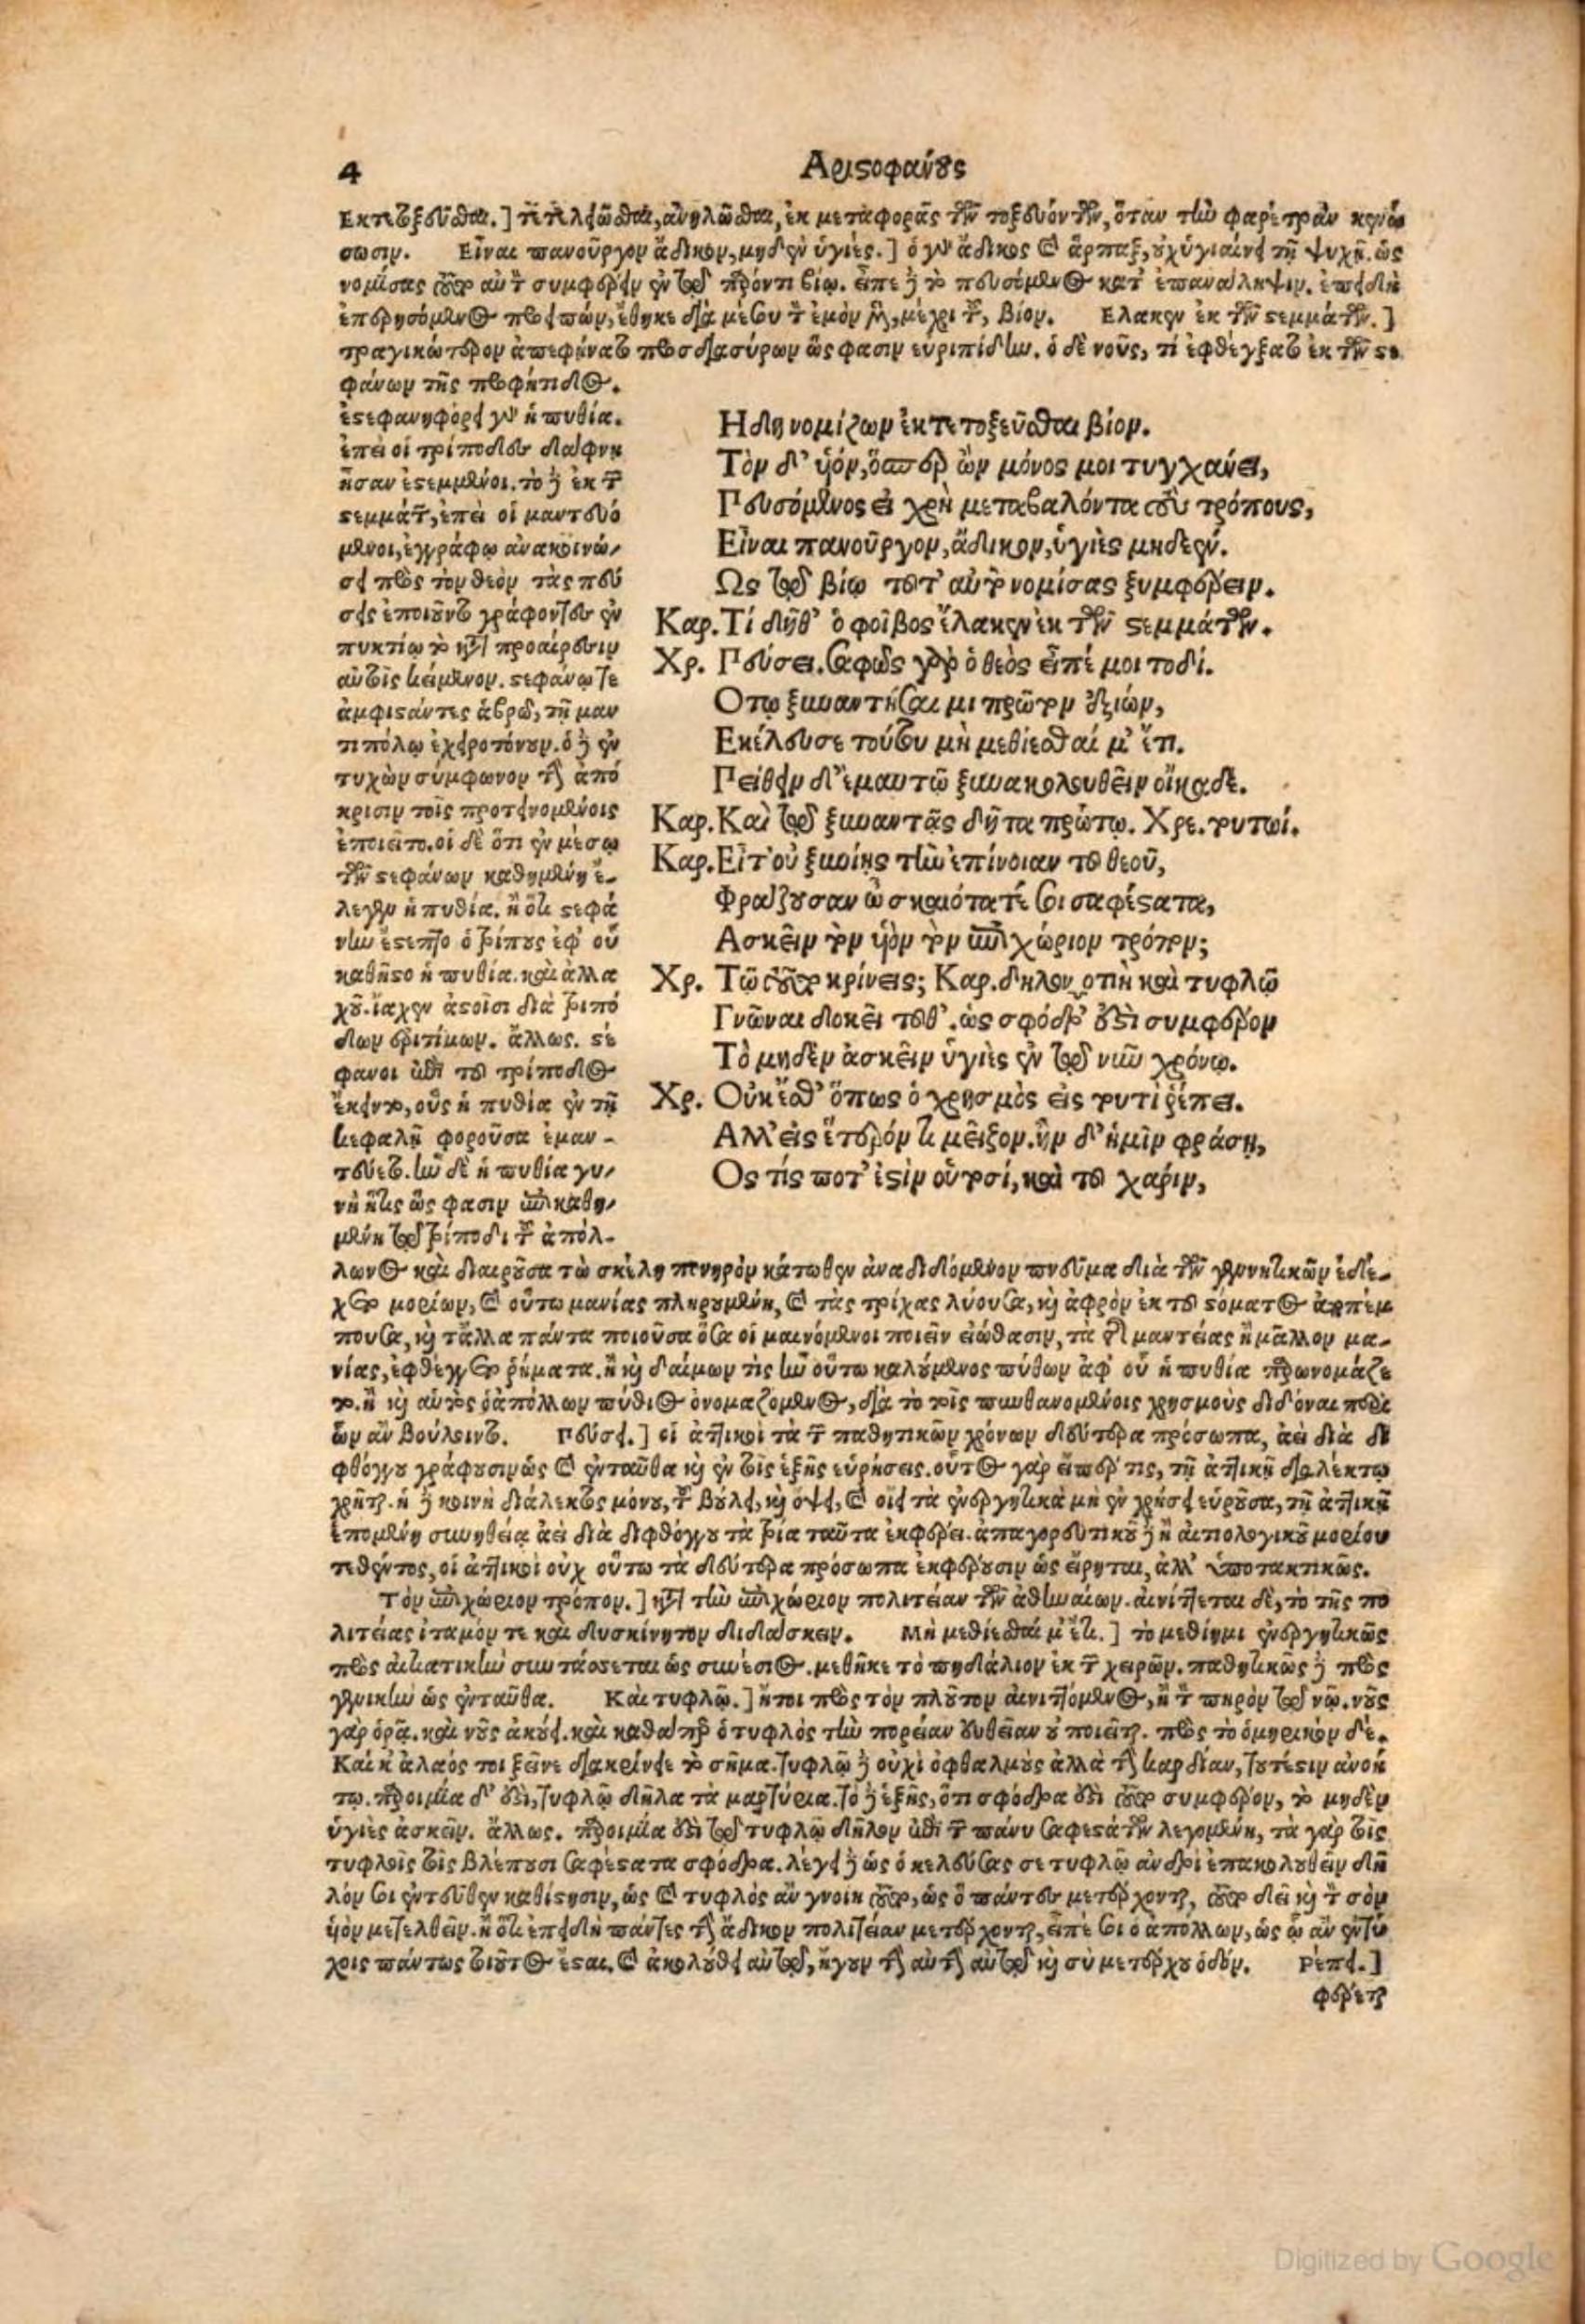 4 Αριστοφάνους
Εκτετοξεῦσθαι.] τετελέσθαι, ἀνηλῶσθαι, ἐκ μεταφορᾶς τῶν τοξευόντων, ὅταν τὴν φαρέτραν κενώ
σωσιν. Εἶναι πανοῦργον ἄδικον, μηδὲν ὑγιές.] ὁ γὰρ ἄδικος καὶ ἅρπαξ, οὐχ ὑγιαίνει τῇ ψυχῇ. ὡς
νομίσας τοῦτο αὐτὸ συμφέρειν ἐν τῷ παρόντι βίῳ. εἶπε δὲ τὸ πευσόμενος κατ' ἐπανάληψιν. ἐπειδὴ
ἐπερησόμενος προειπὼν, ἔθηκε διὰ μέσου τὸν ἐμὸν μὲν, μέχρι τοῦ, βίον. Ελακεν ἐκ τῶν στεμμάτων.]
τραγικώτερον ἀπεφήνατο προσδιασύρων ὥς φασιν εὐριπίδην. ὁ δὲ νοῦς, τί ἐφθέγξατο ἐκ τῶν στε
φάνων τῆς προφήτιδος.
ἐστεφανηφόρει γὰρ ἡ πυθία.
ἐπεὶ οἱ τρίποδες δάφνῃ
ἦσαν ἐστεμμένοι. τὸ δὲ ἐκ τῶν
στεμμάτων, ἐπεὶ οἱ μαντευό
μενοι, ἐγγράφῳ ἀνακοινώ-
σει πρὸς τὸν θεὸν τὰς πεύ
σεις ἐποιοῦντο γράφοντες ἐν
πυκτίῳ τὸ κατὰ προαίρεσιν
αὐτοῖς κείμενον. στεφάνῳ τε
ἀμφιστάντες ἁβρῷ, τῇ μαν
τιπόλῳ ἐχειροτόνουν. ὁ δὲ ἐν
τυχὼν σύμφωνον τὴν ἀπό
κρισιν τοῖς προτεινομένοις
ἐποιεῖτο. οἱ δὲ ὅτι ἐν μέσῳ
τῶν στεφάνων καθημένη ἔ-
λεγεν ἡ πυθία. ἢ ὅτι στεφά
νῳ ἔστεπτο ὁ τρίπους ἐφ' οὗ
καθῆστο ἡ πυθία. καὶ ἀλλα
χοῦ. ἴαχεν ἀστοῖσι διὰ τριπό
δων ἐριτίμων. ἄλλως. στέ
φανοι ἐπὶ τοῦ τρίποδος
ἔκειντο, οὓς ἡ πυθία ἐν τῇ
κεφαλῇ φοροῦσα ἐμαν-
τεύετο. ἦν δὲ ἡ πυθία γυ-
νὴ ἥτις ὥς φασιν ἐπικαθη-
μένη τῷ τρίποδι τοῦ ἀπόλ-
Ηδη νομίζων ἐκτετοξεῦσθαι βίον.
Τὸν δ' υἱόν, ὅσπερ ὢν μόνος μοι τυγχάνει,
Πευσόμενος εἰ χρὴ μεταβαλόντα τοὺς τρόπους,
Εἶναι πανοῦργον, ἄδικον, ὑγιὲς μηδεέν.
Ως τῷ βίῳ τοῦτ' αὐτὸ νομίσας ξυμφέρειν.
Καρ. Τί δῆθ' ὁ φοῖβος ἔλακεν ἐκ τῶν στεμμάτων.
Χρ. Πεύσει. σαφῶς γὰρ ὁ θεὸς εἶπέ μοι τοδί.
Οτῳ ξυναντήσαιμι πρῶτον ἐξιών,
Εκέλευσε τούτου μὴ μεθίεσθαί μ' ἔτι.
Πείθειν δ' ἐμαυτῷ ξυνακολουθεῖν οἴκαδε.
Καρ. Καὶ τῷ ξυναντᾷς δῆτα πρώτῳ. Χρε. τουτωί.
Καρ. Εἶτ' οὐ ξυνίης τὴν ἐπίνοιαν τοῦ θεοῦ,
Φράζουσαν ὦ σκαιότατέ σοι σαφέστατα,
Ασκεῖν τὸν υἱὸν τὸν ἐπιχώριον τρόπον;
Χρ. Τῷ τοῦτο κρίνεις; Καρ. δῆλον οτιὴ καὶ τυφλῷ
Γνῶναι δοκεῖ τοῦθ'. ὡς σφόδρ' ἐστὶ συμφέρον
Τὸ μηδὲν ἀσκεῖν ὑγιὲς ἐν τῷ νῦν χρόνῳ.
Χρ. Οὐκ ἔσθ' ὅπως ὁ χρησμὸς εἰς τουτὶ ῥέπει.
Αλλ' εἰς ἕτερόν τι μεῖζον. ἢν δ' ἡμῖν φράσῃ,
Ος τίς ποτ' ἐστὶν οὑτοσί, καὶ τοῦ χάριν,
λωνος καὶ διαιροῦσα τὼ σκέλη πονηρὸν κάτωθεν ἀναδιδόμενον πνεῦμα διὰ τῶν γεννητικῶν ἐδέ-
χετο μορίων, καὶ οὕτω μανίας πληρουμένη, καὶ τὰς τρίχας λύουσα, καὶ ἀφρὸν ἐκ τοῦ στόματος ἀποπέμ
πουσα, καὶ τἄλλα πάντα ποιοῦσα ὅσα οἱ μαινόμενοι ποιεῖν εἰώθασιν, τὰ τῆς μαντείας ἢ μᾶλλον μα-
νίας, ἐφθέγγετο ῥήματα. ἢ καὶ δαίμων τὶς ἦν οὕτω καλούμενος πύθων ἀφ' οὗ ἡ πυθία προωνομάζε
το. ἢ καὶ αὐτὸς ὁ ἀπόλλων πύθιος ὀνομαζόμενος, διὰ τὸ τοῖς πυνθανομένοις χρησμοὺς διδόναι περὶ
ὧν ἂν βούλοιντο. Πεύσει.] οἱ ἀττικοὶ τὰ τῶν παθητικῶν χρόνων δεύτερα πρόσωπα, ἀεὶ διὰ δι
φθόγγου γράφουσιν ὡς καὶ ἐνταῦθα καὶ ἐν τοῖς ἑξῆς εὑρήσεις. οὗτος γὰρ εἴπερ τις, τῇ ἀττικῇ διαλέκτῳ
χρῆται. ἡ δὲ κοινὴ διάλεκτος μόνου, τοῦ βούλει, καὶ ὄψει, καὶ οἴει τὰ ἐνεργητικὰ μὴ ἐν χρήσει εὑροῦσα, τῇ ἀττικῇ
ἑπομένη συνηθείᾳ ἀεὶ διὰ διφθόγγου τὰ τρία ταῦτα ἐκφέρει. ἀπαγορευτικοῦ δὲ ἢ αἰτιολογικοῦ μορίου
τεθέντος, οἱ ἀττικοὶ οὐχ οὕτω τὰ δεύτερα πρόσωπα ἐκφέρουσιν ὡς εἴρηται, ἀλλ' ὑποτακτικῶς.
Τὸν ἐπιχώριον τρόπον.] κατὰ τὴν ἐπιχώριον πολιτείαν τῶν ἀθηναίων. αἰνίττεται δὲ, τὸ τῆς πο
λιτείας ἰταμόν τε καὶ δυσκίνητον διδάσκειν. Μὴ μεθίεσθαί μ' ἔτι.] τὸ μεθίημι ἐνεργητικῶς
πρὸς αἰτιατικὴν συντάσσεται ὡς συνέσιος. μεθῆκε τὸ πηδάλιον ἐκ τῶν χειρῶν. παθητικῶς δὲ πρὸς
γενικὴν ὡς ἐνταῦθα. Καὶ τυφλῷ.] ἤτοι πρὸς τὸν πλοῦτον αἰνιττόμενος, ἢ τὸν πηρὸν τῷ νῷ. νοῦς
γὰρ ὁρᾷ. καὶ νοῦς ἀκούει. καὶ καθάπερ ὁ τυφλὸς τὴν πορείαν εὐθεῖαν οὐ ποιεῖται. πρὸς τὸ ὁμηρικὸν δέ.
Καί κ' ἀλαός τοι ξεῖνε διακρίνειε τὸ σῆμα. τυφλῷ δὲ οὐχὶ ὀφθαλμοὺς ἀλλὰ τὴν καρδίαν, τουτέστιν ἀνοή
τῳ. παροιμία δ' ἐστὶ, τυφλῷ δῆλα τὰ μαρτύρια. τὸ δὲ ἑξῆς, ὅτι σφόδρα ἐστὶ τοῦτο συμφέρον, τὸ μηδὲν
ὑγιὲς ἀσκεῖν. ἄλλως. παροιμία ἐστὶ τῷ τυφλῷ δῆλον ἐπὶ τῶν πάνυ σαφεστάτων λεγομένη, τὰ γὰρ τοῖς
τυφλοῖς τοῖς βλέπουσι σαφέστατα σφόδρα. λέγει δὲ ὡς ὁ κελεύσας σε τυφλῷ ἀνδρὶ ἐπακολουθεῖν δῆ
λόν σοι ἐντεῦθεν καθίστησιν, ὡς καὶ τυφλὸς ἂν γνοίη τοῦτο, ὡς ὃ πάντες μετέρχονται, τοῦτο δεῖ καὶ τὸν σὸν
υἱὸν μετελθεῖν. ἢ ὅτι ἐπειδὴ πάντες τὴν ἄδικον πολιτείαν μετέρχονται, εἶπέ σοι ὁ ἀπόλλων, ὡς ᾧ ἂν ἐντύ
χοις πάντως τοιοῦτος ἔσται. καὶ ἀκολούθει αὐτῷ, ἤγουν τὴν αὐτὴν αὐτῷ καὶ σὺ μετέρχου ὁδόν. Ρέπει.]
φέρεται
Digitized by Google